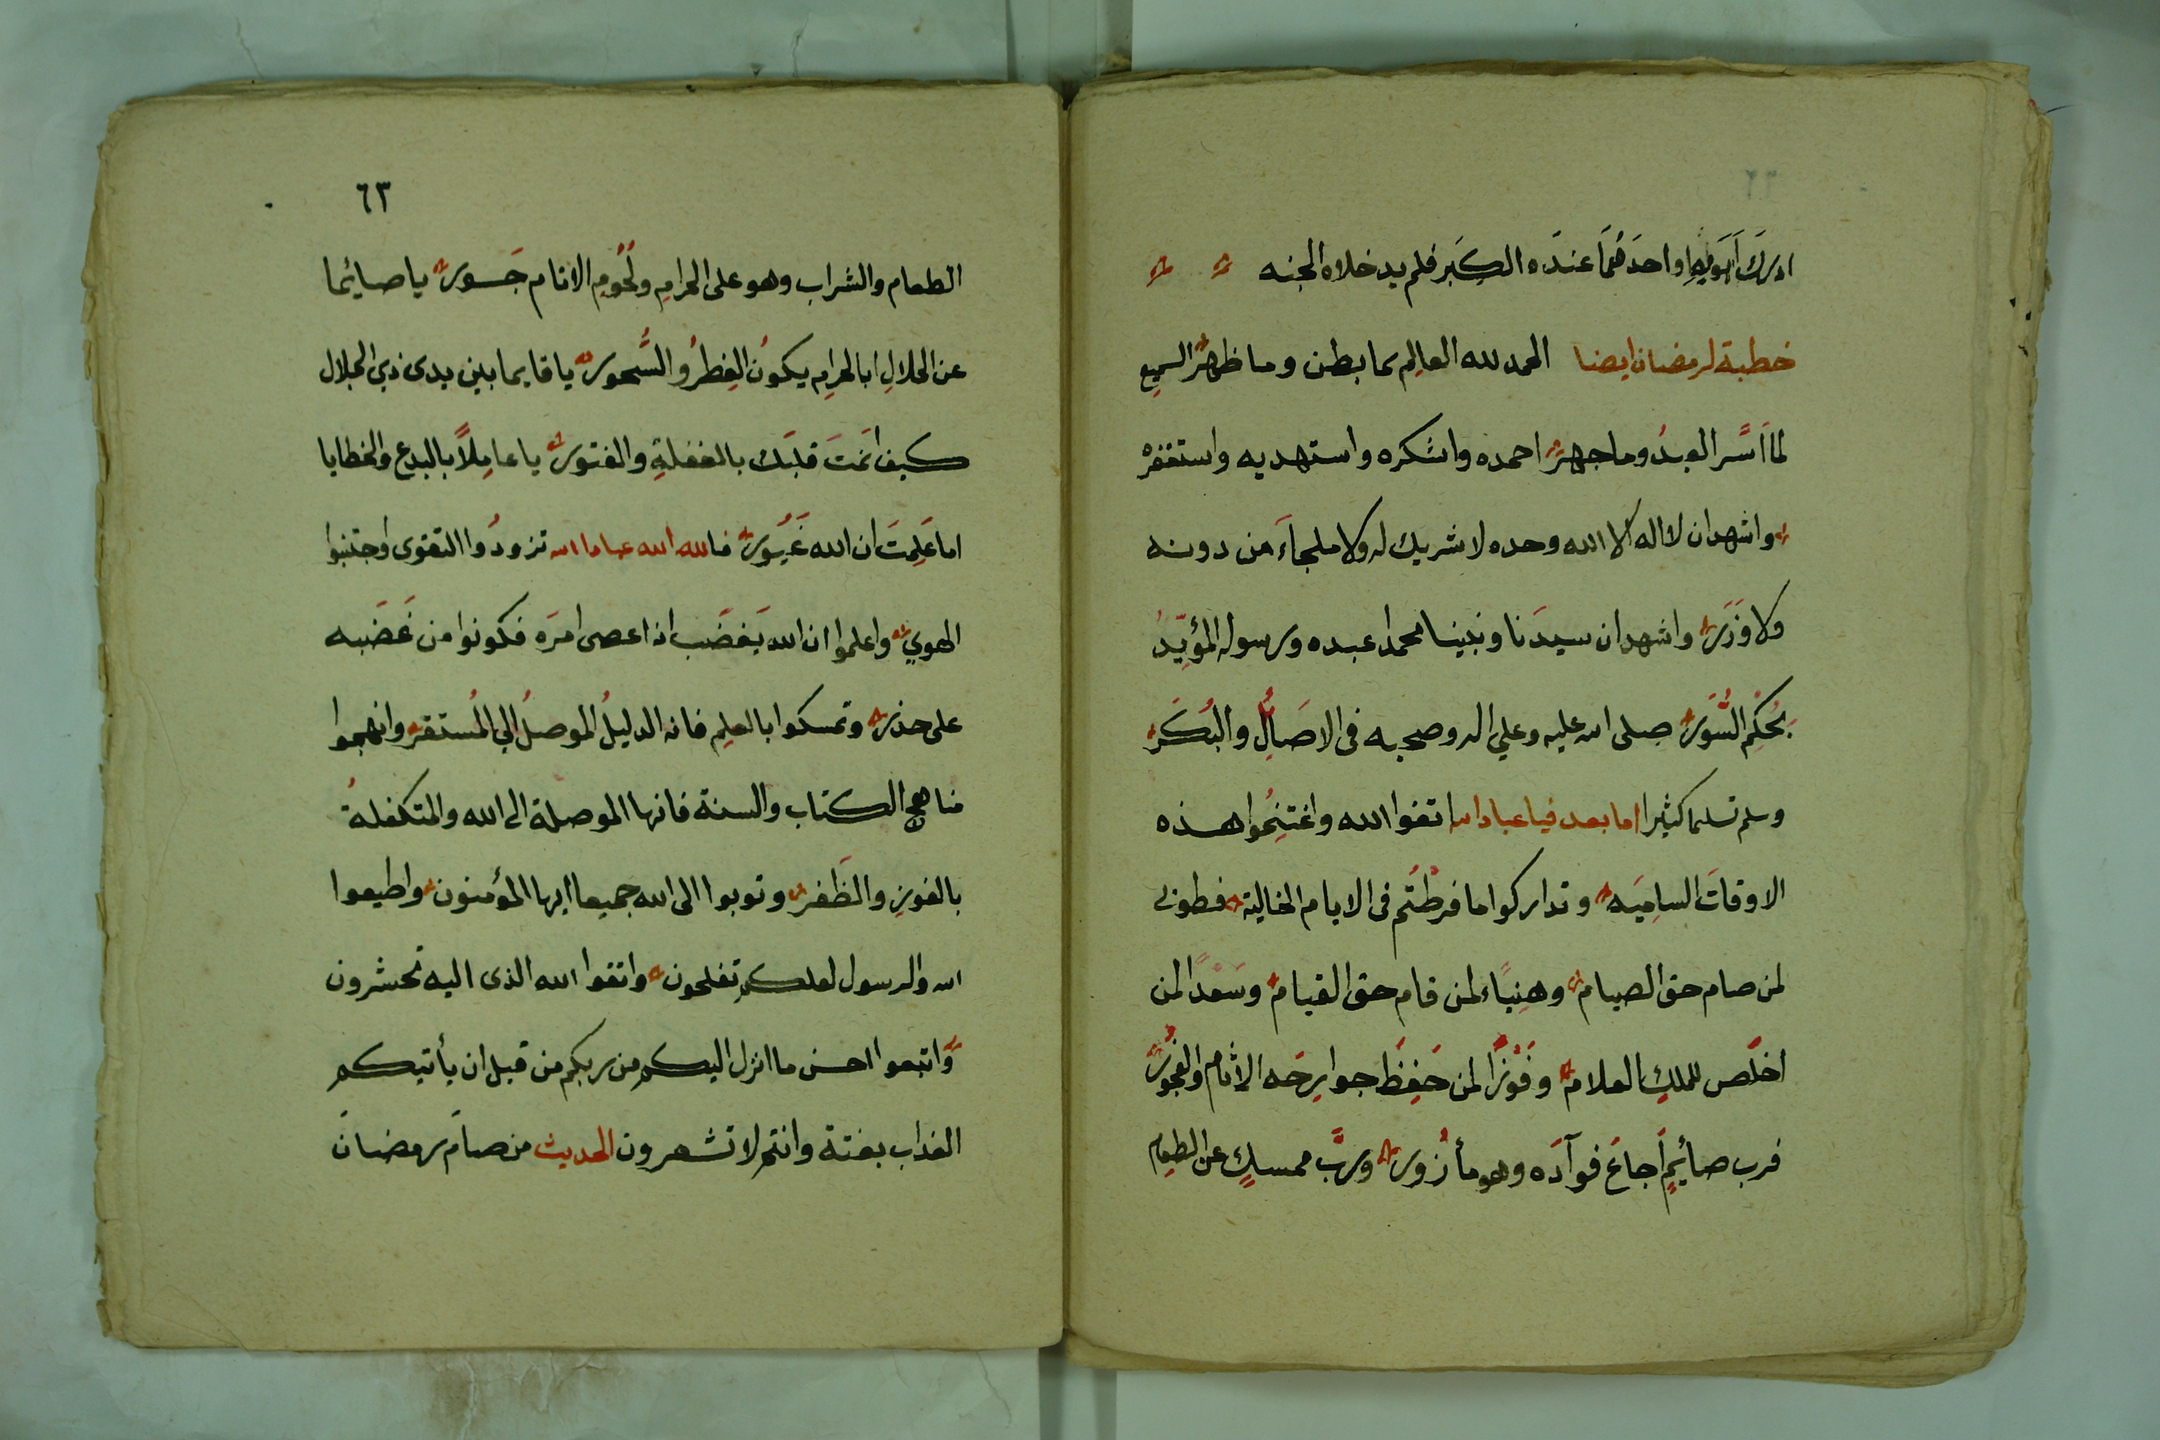 ادرك ابويه او احدهما عنده الكبر فلم يدخلاه الجنه
خطبة لرمضان ايضا الحمد لله العالم بما بطن وما ظهر السميع
لما اسر العبد وما جهر احمده واشكره واستهديه واستغفره
واشهد ان لا اله الا الله وحده لا شريك له ولا ملجاء من دونه
ولا وزر واشهد ان سيدنا ونبينا محمدا عبده ورسوله المؤيد
بحكم السور صلى الله عليه وعلي اله وصحبه فى الاصال والبكر
وسلم تسليما كثيرا اما بعد فيا عباد الله اتقوا الله واغتنموا هذه
الاوقات الساميه وتداركوا ما فرطتم فى الايام الخالية فطوبى
لمن صام حق الصيام وهنياء لمن قام حق القيام وسعدا لمن
اخلص للملك العلام وفوزا لمن حفظ جوارحه الاثام والفجور
فرب صائيم اجاع فوآده وهو مأزور ورب ممسك عن الطعام
٦٣
الطعام والشراب وهو على الحرام ولحوم الانام جسور يا صائما
عن الحلال ابالحرام يكون الفطر والسحور يا قايما بين يدى ذي الجلال
كيف انمت قلبك بالغفلة والفتور يا عاملا بالبدع والخطايا
اما علمت ان الله غيور فالله الله عباد الله تزودوا التقوى واجتنبوا
الهوي واعلموا ان الله يغضب اذا عصى امره فكونوا من غضبه
على حذر وتمسكوا بالعلم فانه الدليل الموصل الي المستقر وانهجوا
مناهج الكتاب والسنة فانها الموصلة الى الله والمتكفلة
بالفوز والظفر وتوبوا الى الله جميعا ايها المؤمنون واطيعوا
الله والرسول لعلكم تفلحون واتقوا الله الذى اليه تحشرون
واتبعوا احسن ما انزل اليكم من ربكم من قبل ان يأتيكم
العذاب بغتة وانتم لا تشعرون الحديث من صام رمضان